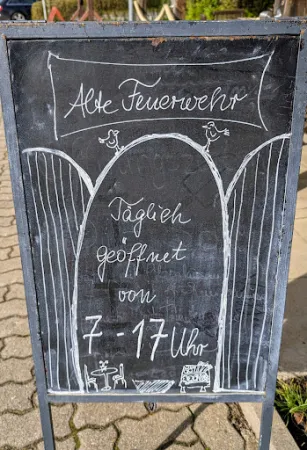 Alte Feuerwehr
Täglich
geöffnet
von
7 - 17 Uhr